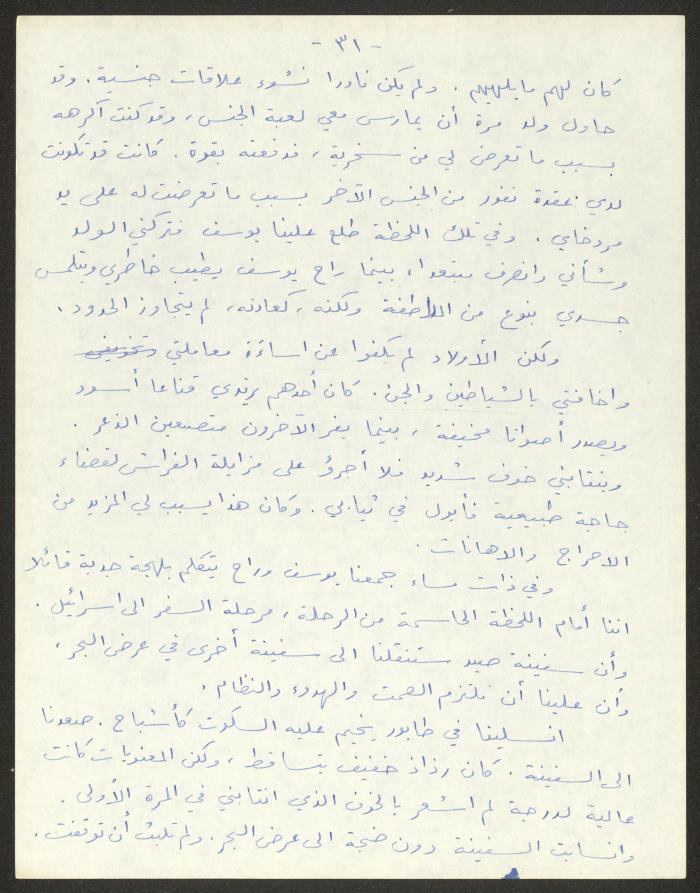 - ٣١ -
كان لهم ما يلهيهم . ولم يكن نادرا نشوء علاقات جنسية . وقد
حاول ولد مرة أن يمارس معي لعبة الجنس ، وقد كنت أكرهه
بسبب ما تعرض لي من سخرية ، فدفعته بقوة . كانت قد تكونت
لدي عقدة نفور من الجنس الآخر بسبب ما تعرضت له على يد
مردخاي . وفي تلك اللحظة طلع علينا يوسف فتركني الولد
وشأني وانصرف مبتعدا ، بينما راح يوسف يطيب خاطري ويتلمس
جسدي بنوع من الملاطفة ولكنه ، كعادته ، لم يتجاوز الحدود .
ولكن الأولاد لم يكفوا عن اساءة معاملتي وتخويفي
واخافتي بالشياطين والجن . كان أحدهم يرتدي قناعا أسود
ويصدر أصواتا مخيفة ، بينما يفر الآخرون متصنعين الذعر .
وينتابني خوف شديد فلا أجرؤ على مزايلة الفراش لقضاء
حاجة طبيعية فأبول في ثيابي . وكان هذا يسبب لي المزيد من
الاحراج والاهانات .
وفي ذات مساء جمعنا يوسف وراح يتكلم بلهجة جدية قائلا
اننا أمام اللحظة الحاسمة من الرحلة ، مرحلة السفر الى اسرائيل .
وأن سفينة صيد ستنقلنا الى سفينة أخرى في عرض البحر ،
وأن علينا أن نلتزم الصمت والهدوء والنظام .
انسللنا في طابور يخيم عليه السكوت كأشباح . صعدنا
الى السفينة . كان رذاذ خفيف يتساقط ، ولكن المعنويات كانت
عالية لدرجة لم اشعر بالخوف الذي انتابني في المرة الأولى .
وانسابت السفينة دون ضجة الى عرض البحر . ولم تلبث أن توقفت .